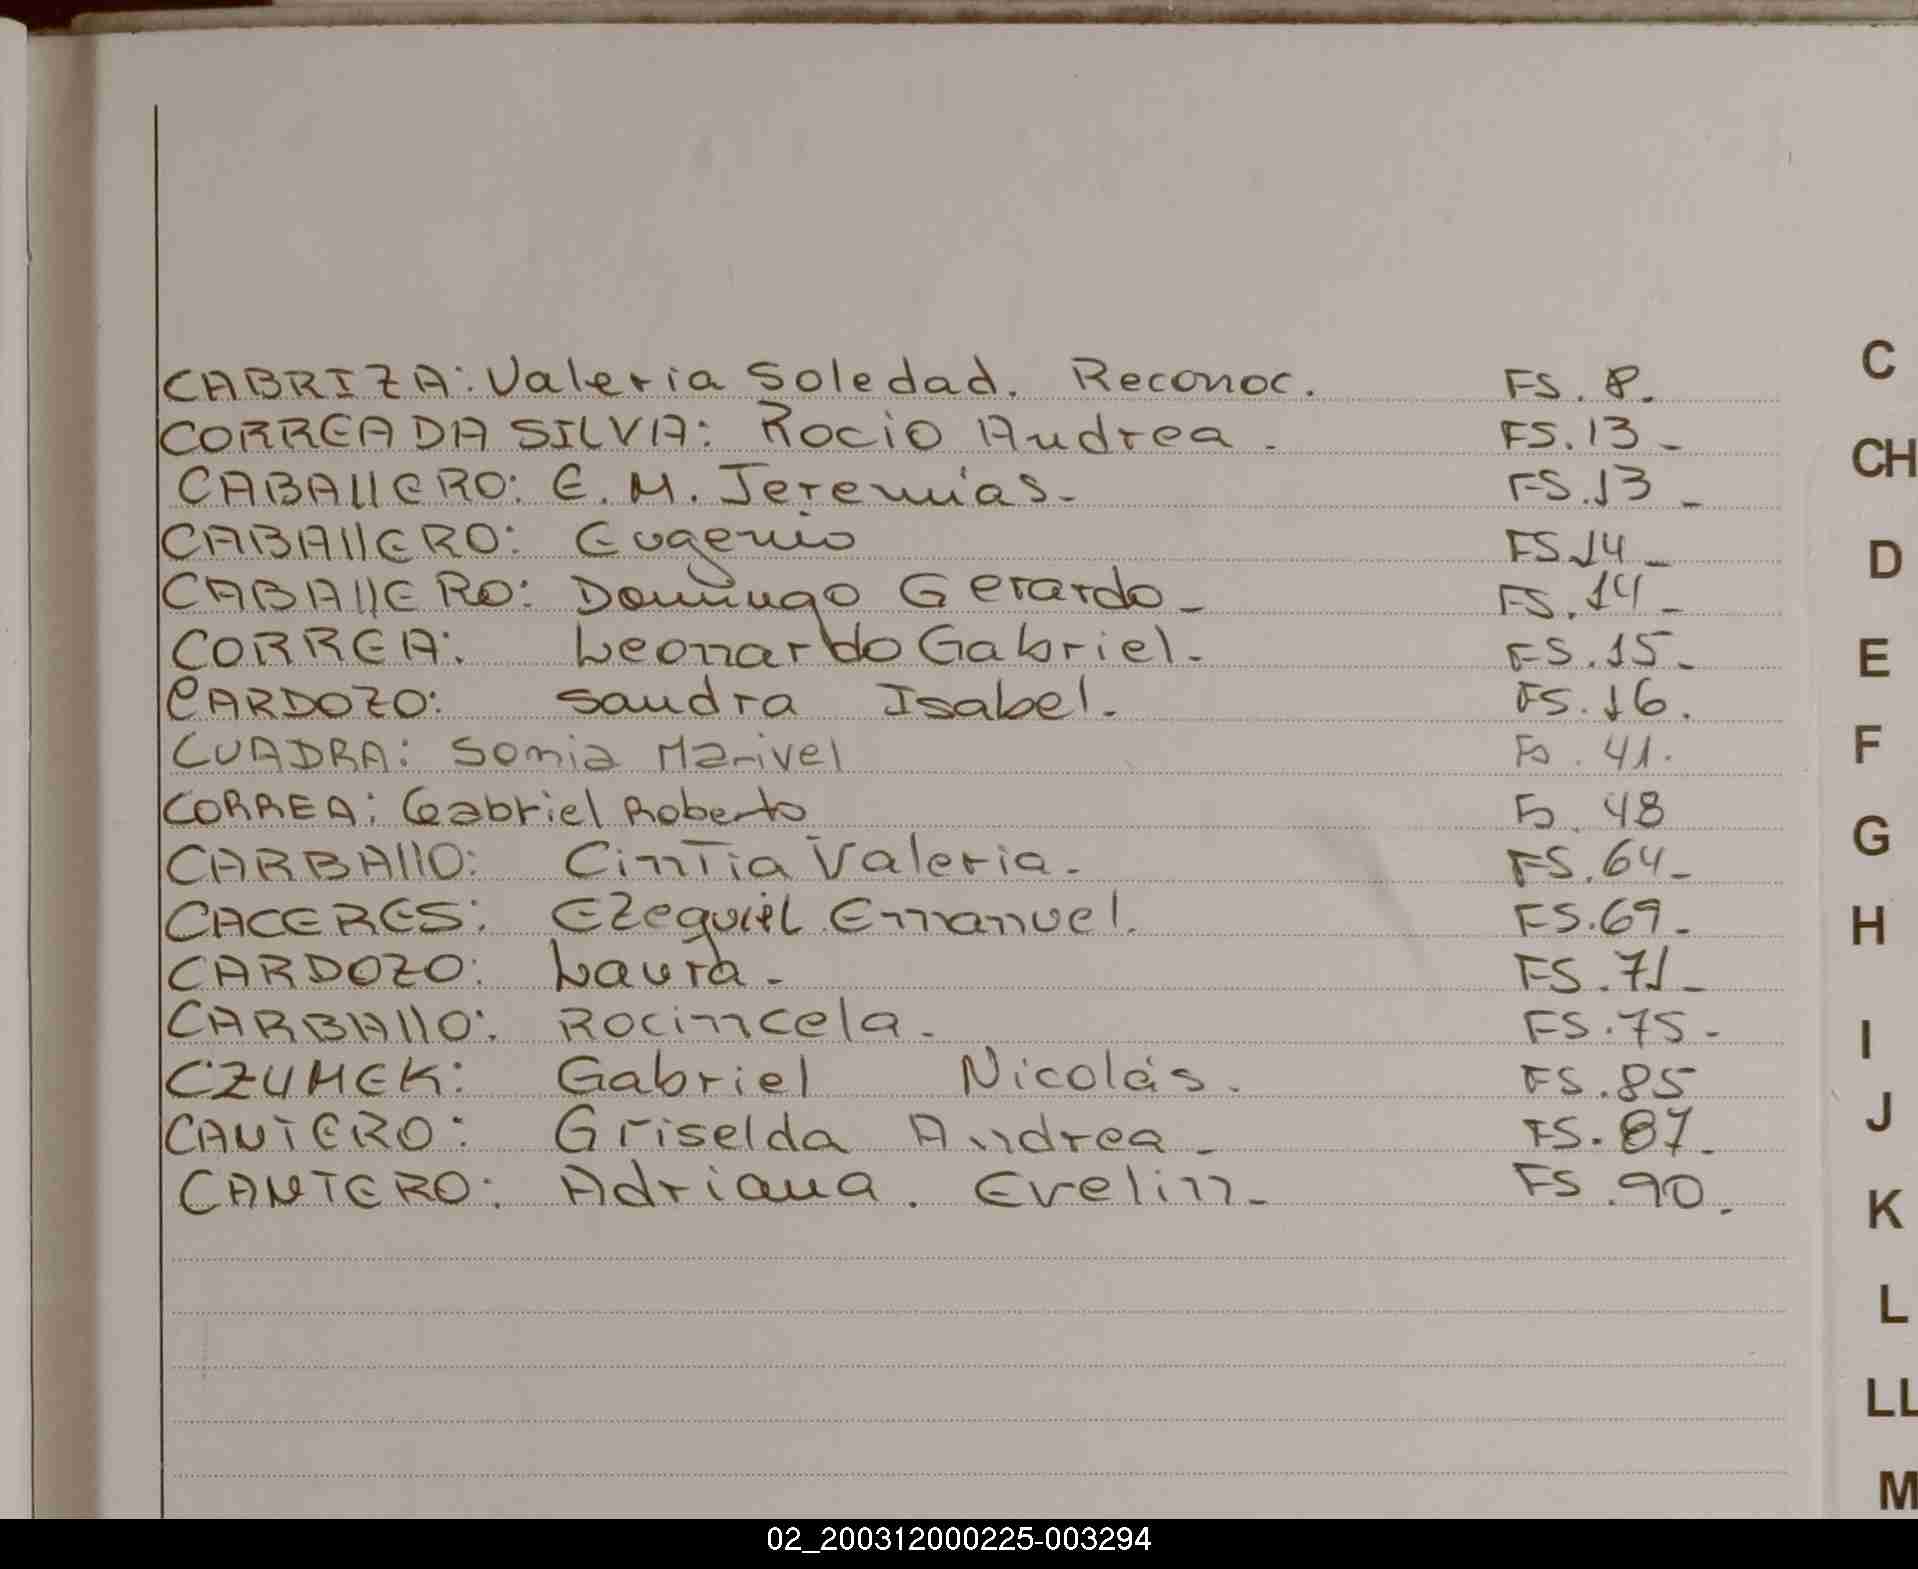 CABRIZA: Valeria Soledad. Reconoc. FS. 8.
CORREA DA SILVA: Rocio Andrea - FS. 13 -
CABALLERO: E. M. Jeremias - FS. 13 -
CABALLERO: Eugenio FS. 14 -
CABALLERO: Domingo Gerardo - FS. 14 -
CORREA: Leonardo Gabriel - FS. 15 -
CARDOZO: Sandra Isabel. FS. 16.
CUADRA: Sonia Marivel Fs. 41.
CORREA: Gabriel Roberto Fs. 48
CARBALLO: Cintia Valeria - FS. 64 -
CACERES: Ezequiel Emanuel. FS. 69 -
CARDOZO: Laura - FS. 71 -
CARBALLO: Rocincela - FS. 75 -
CZUMEK: Gabriel Nicolás. FS. 85
CANTERO: Griselda Andrea - FS. 87 -
CANTERO: Adriana. Evelin - FS. 90.
C
CH
D
E
F
G
H
I
J
K
L
LL
M
02_200312000225-003294